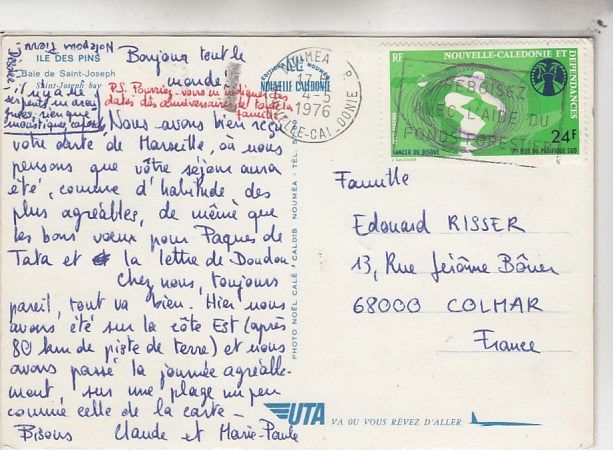 ILE DES PINS
Baie de Saint-Joseph
Saint-Joseph bay
Bonjour tout le
monde!
P.S. Pourriez-vous m'indiquer les
dates des anniversaires de toute la
famille
Nous avons bien reçu
votre carte de Marseille, où nous
pensons que votre séjour aura
été, comme d'habitude des
plus agréables, de même que
les bons vœux pour Pâques de
Tata et la lettre de Doudou.
Chez nous, toujours
pareil, tout va bien. Hier nous
avons été sur la côte Est (après
80 km de piste de terre) et nous
avons passé la journée agréable-
ment, sur une plage un peu
comme celle de la carte -
Bisous Claude et Marie-Paule
il n'y a pas de
serpents
rien que
moustiques
EDITIONS NOUMÉA
NOUVELLE CALÉDONIE
PHOTO NOËL CALÉ - CALDIS NOUMÉA - TÉL.
NOUMÉA R.P.
17 H
4-5
1976
NLLE-CALEDONIE
RF
NOUVELLE-CALEDONIE ET
DEPENDANCES
AVEC L'AIDE DU
FONDS FOREST
24F
LANCER DU DISQUE
JEUX DU PACIFIQUE SUD
Famille
Edouard RISSER
13, Rue Jérôme Boner
68000 COLMAR
France
UTA
VA OU VOUS RÊVEZ D'ALLER